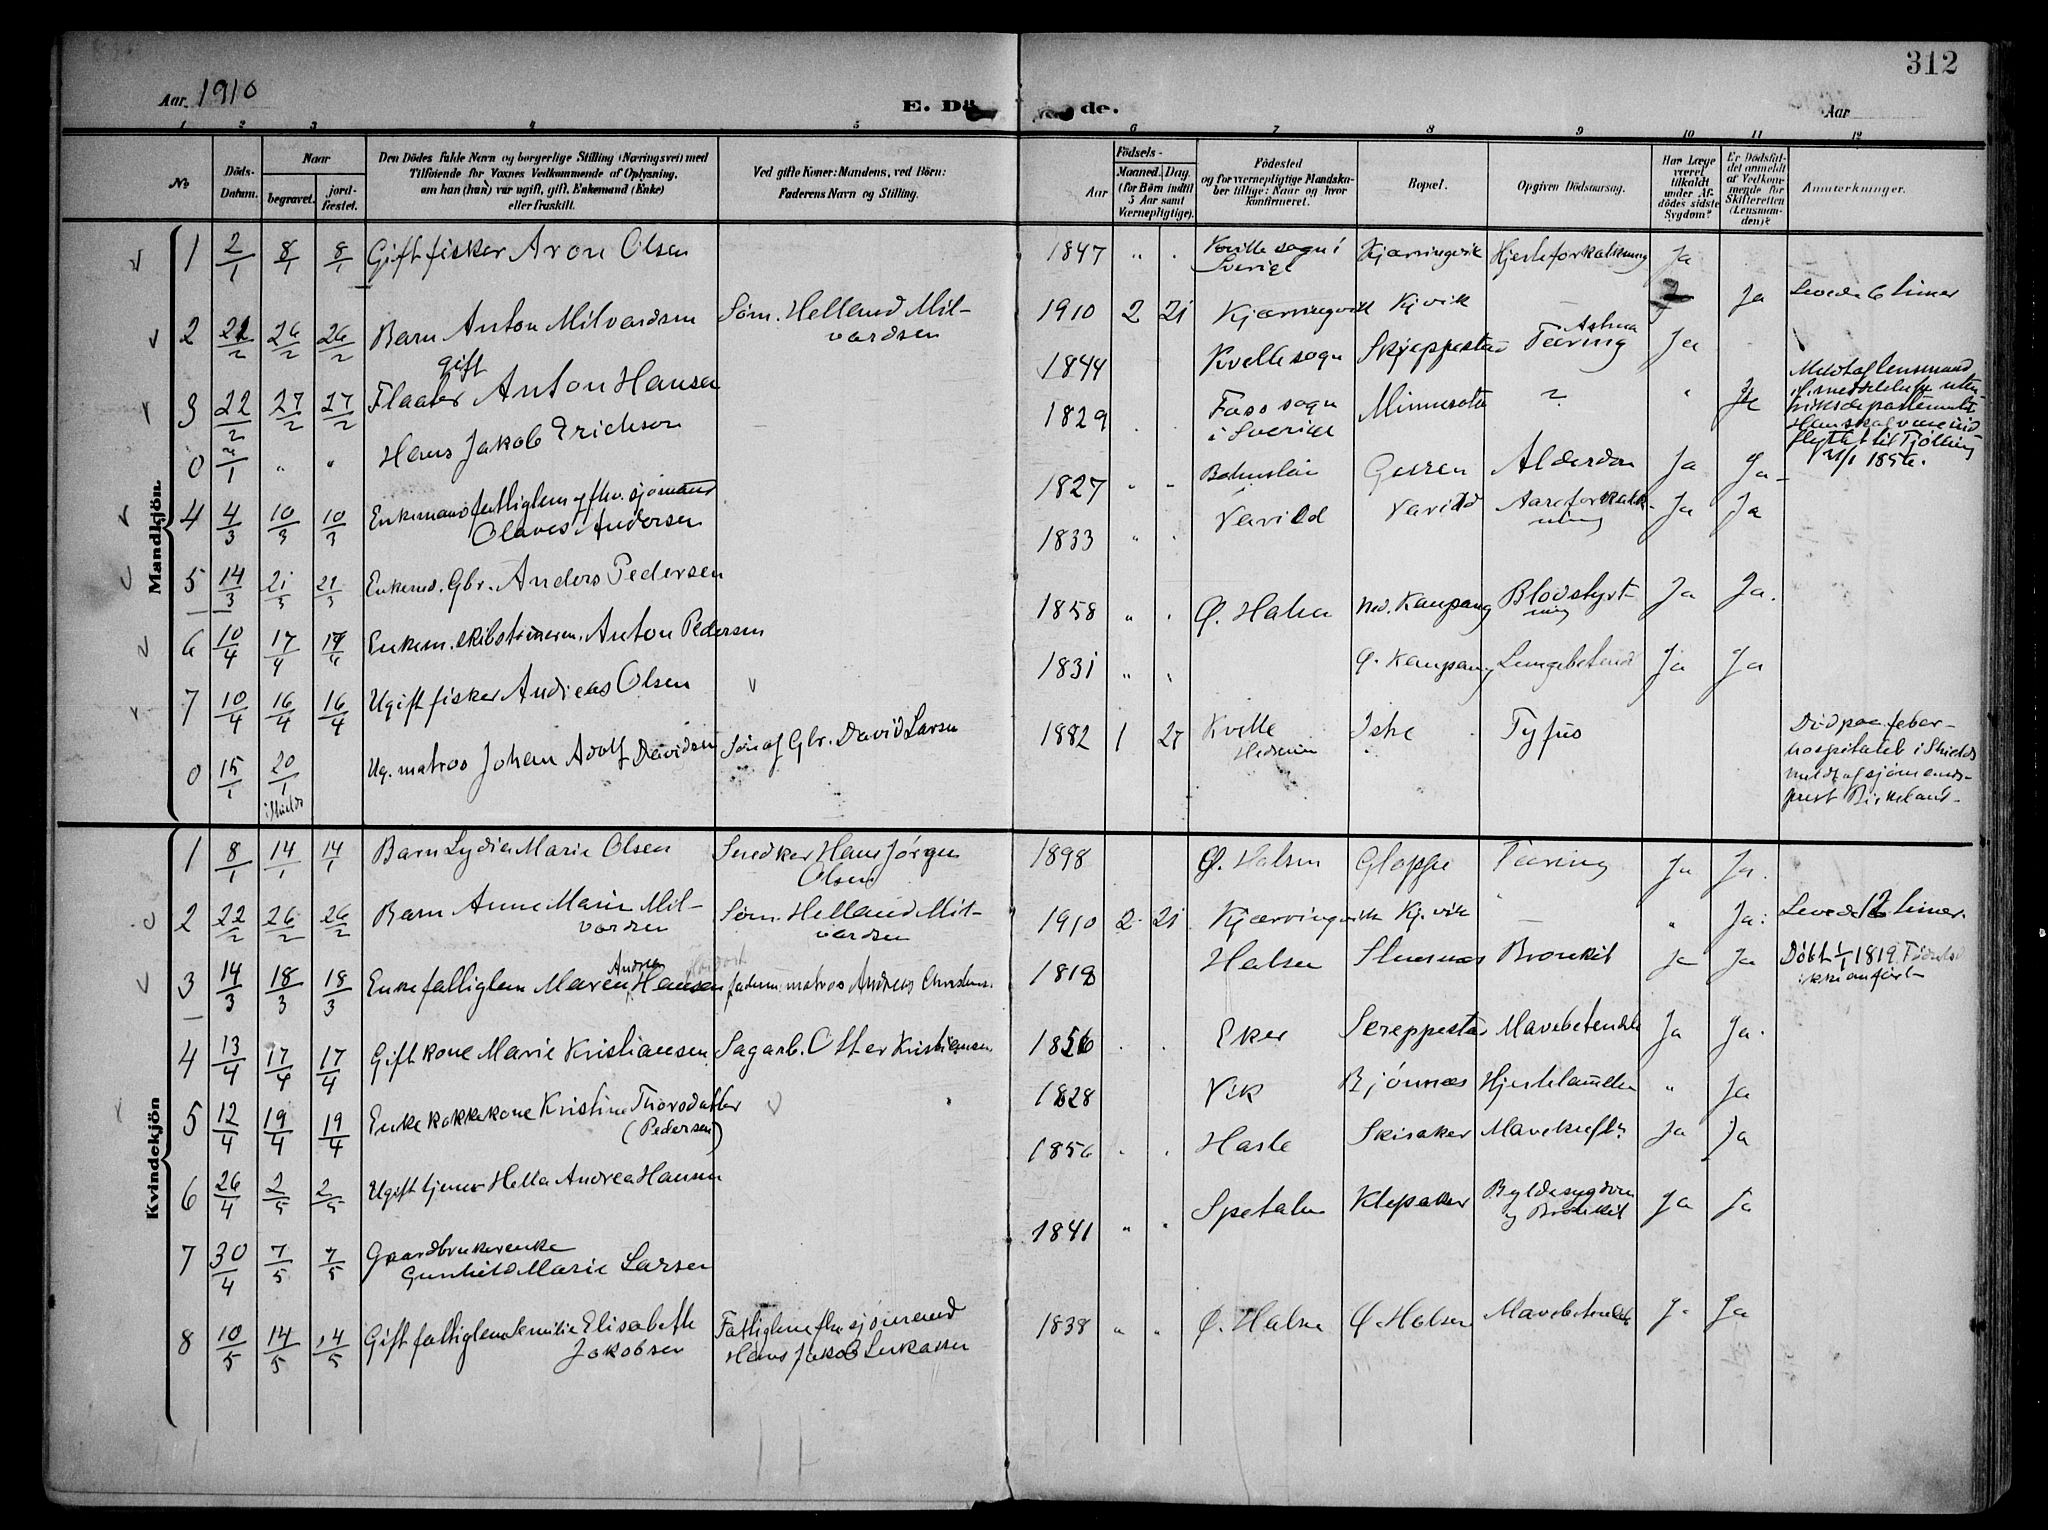 312
Aar 1910
E. Dö de.
Aar
1 2 3 4 5 6 7 8 9 10 11 12
No
Döds-Datum.
Naar
begravet.
jord-fæstet.
Den Dödes fulde Navn og borgerlige Stilling (Næringsvei) med
Tilföiende for Voxnes Vedkommende af Oplysning,
om han (hun) var ugift, gift, Enkemand (Enke)
eller fraskilt.
Ved gifte Koner: Mandens, ved Börn:
Faderens Navn og Stilling.
Födsels-
Aar
Maaned. Dag.
(for Börn indtil
5 Aar samt
Værnepligtige).
Födested
og for værnepligtige Mandska-
ber tillige: Naar og hvor
konfirmeret.
Bopæl.
Opgiven Dödsaarsag.
Har Læge
været
tilkaldt
under Af-
dödes sidste
Sygdom?
Er Dödsfal-
det anmeldt
af Vedkom-
mende for
Skifteretten
(Lensman-
den)?
Anmærkninger.
Mandkjön
1 2/1 8/1 8/1 Gift fisker Aron Olsen 1847 " Kville sogn i Sverige Kjærringvik Hjerteforkalkning Ja
2 22/2 26/2 26/2 Barn Anton Milvardsen Søm. Helland Mil-
vardsen 1910 2 21 Kjærringvik Kjvik — Ja Levede 6 timer
3 22/2 27/2 27/2 gift
Flaater Anton Hansen 1844 Kville sogn Skjeppestad Tæring Astma Ja
0 2/1 " " Hans Jakob Erickson 1829 Foss sogn
i Sverige Minnesota ? " Ja Meldt af lensmand
flyttet til Tjølling
1856.
4 4/3 10/3 10/3 Enkemand fattiglem fhv. sjømand
Olaves Andersen 1827 " " Bohuslän Gusren Alderdom Ja Ja
5 14/3 21/3 21/3 Enkemd. Gbr. Anders Pedersen 1833 " Varild Varild Aareforkalk-
ning Ja Ja
6 10/4 17/4 17/4 Enkem. skibstømrerm. Anton Pedersen 1858 " Ø. Halsen Ned. Kaupang Blodstyrt-
ning Ja Ja.
7 10/4 16/4 16/4 Ugift fisker Andreas Olsen 1831 " " Ø. Kaupang Lungebetend Ja Ja
0 15/1 20/1 i Shields Ug. matros Johan Adolf Davidsen Søn af Gbr. David Larsen 1882 1 27 Kville
Hedrum Iske Tyfus Død paa feber-
hospitalet i Shields
meldt af sjømands-
prest Birkeland.
Kvindekjön
1 8/1 14/1 14/1 Barn Lydia Marie Olsen Snedker Hans Jørgen
Olsen 1898 Ø. Halsen Gloppe Tæring Ja Ja.
2 22/2 26/2 26/2 Barn Anne Marie Mil-
vardsen Søm. Helland Mil-
vardsen 1910 2 21 Kjærringvik Kj.vik — " Ja. Levede 12 timer.
3 14/3 18/3 18/3 Enke fattiglem Maren Andrea Hansen fadern: matros Andreas Christens. 1818 Halsen Stuesnæs Bronkit Ja Ja Døbt 1/1 1819. Fødselsd
ikke anført
4 13/4 17/4 17/4 Gift kone Marie Kristiansen Sagarb. Otter Kristiansen 1856 Eker Skreppestad Mavebetendelse Ja Ja.
5 12/4 19/4 19/4 Enke kokkekone Kristine Thorsdatter
(Pedersen) 1828 Vik Bjørnæs Hjertelammelse " Ja
6 26/4 2/5 2/5 Ugift tjener Hella Andrea Hansen 1856 Hasle Skisaker Mavekreft Ja Ja
7 30/4 7/5 7/5 Gaardbrukerenke
Gunhild Marie Larsen 1841 " " Spetalen Klepaker Byldesygdom
og Bronkit Ja Ja
8 10/5 14/5 14/5 Gift fattiglem Emilie Elisabeth
Jakobsen Fattiglem fhv. sjømand
Hans Jakob Lukassen 1838 " " Ø. Halsen Ø Halsen Mavebetendelse Ja Ja